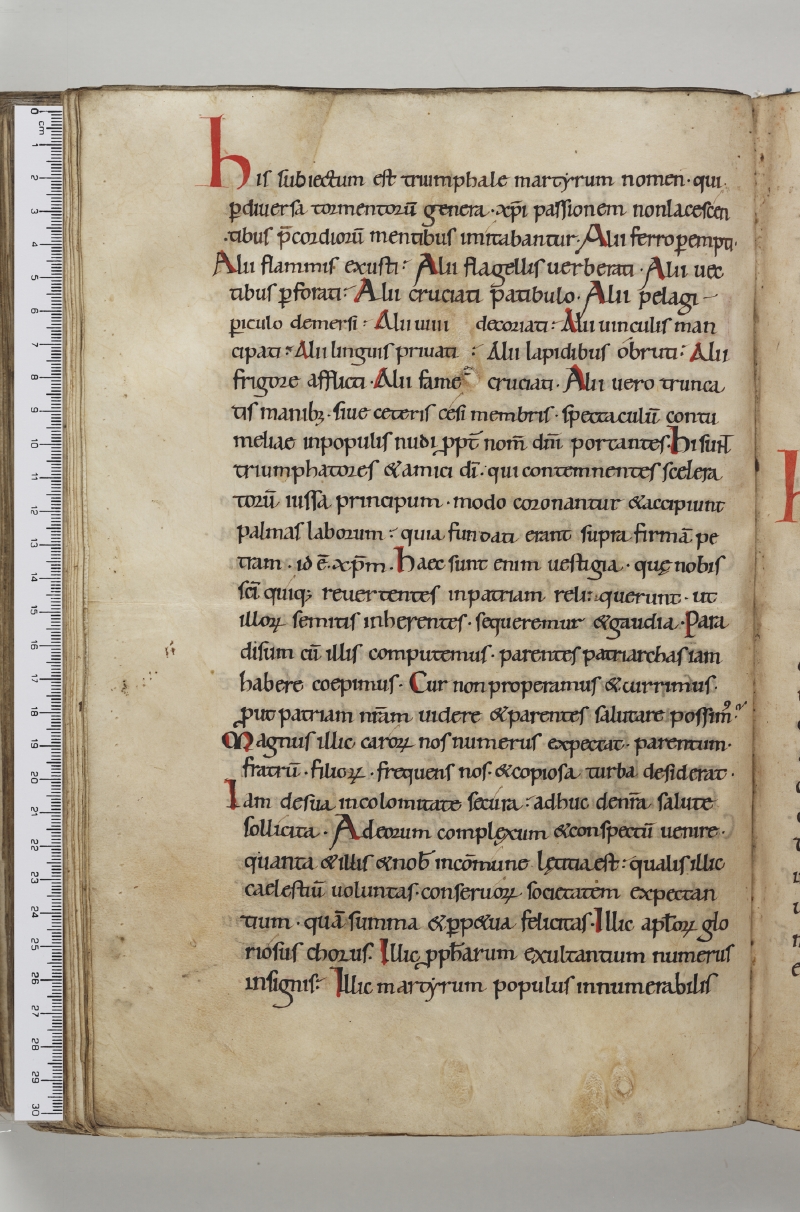 his subiectum est triumphale martyrum nomen · qui
p̄diuersa tormentorū genera · xp̄i passionem nonlacescen
tibus p̄cordiorū mentibus imitabantur · Alii ferro pempti ·
Alii flammis exusti : Alii flagellis uerberati · Alii uec
tibus p̄forati : Alii cruciati patibulo · Alii pelagi
piculo demersi : Alii uiui decoriati : Alii uinculis man
cipati : Alii linguis priuati : Alii lapidibus obruti : Alii
frigore afflicti · Alii fame cruciati · Alii uero trunca
tis manibꝫ · siue ceteris cesi membris · spectaculū contu
meliae inpopulis nudi ꝓpt̄ nom̄ dn̄i portantes · hi sunt
triumphatores & amici dī · qui contemnentes scelera
torū iussa principum · modo coronantur & accipiunt
palmas laborum : quia fundati erant supra firmā pe
tram · id ē · xp̄m · haec sunt enim uestigia · quę nobis
sc̄i quiqꝫ reuertentes inpatriam reliquerunt · ut
illoꝝ semitis inherentes · sequeremur & gaudia · Para
disum cū illis computemus · parentes patriarchas iam
habere coepimus · Cur non properamus & currimus ·
ꝓut patriam nr̄am uidere & parentes salutare possimꝰ
Magnus illic caroꝝ nos numerus expectat · parentum ·
fratrū · filioꝝ · frequens nos · & copiosa turba desiderat ·
Iam desua incolomitate secura : adhuc denr̄a salute
sollicita · Adeorum complexum & conspectū uenire ·
quanta & illis & nob̄ incōmune lętitia est : qualis illic
caelestiū uoluntas · conseruoꝝ societatem expectan
tium · quā summa & ꝑpetua felicitas · Illic apl̄oꝝ glo
riosus chorus · Illic ꝓph̄arum exultantium numerus
insignis : Illic martyrum populus innumerabilis